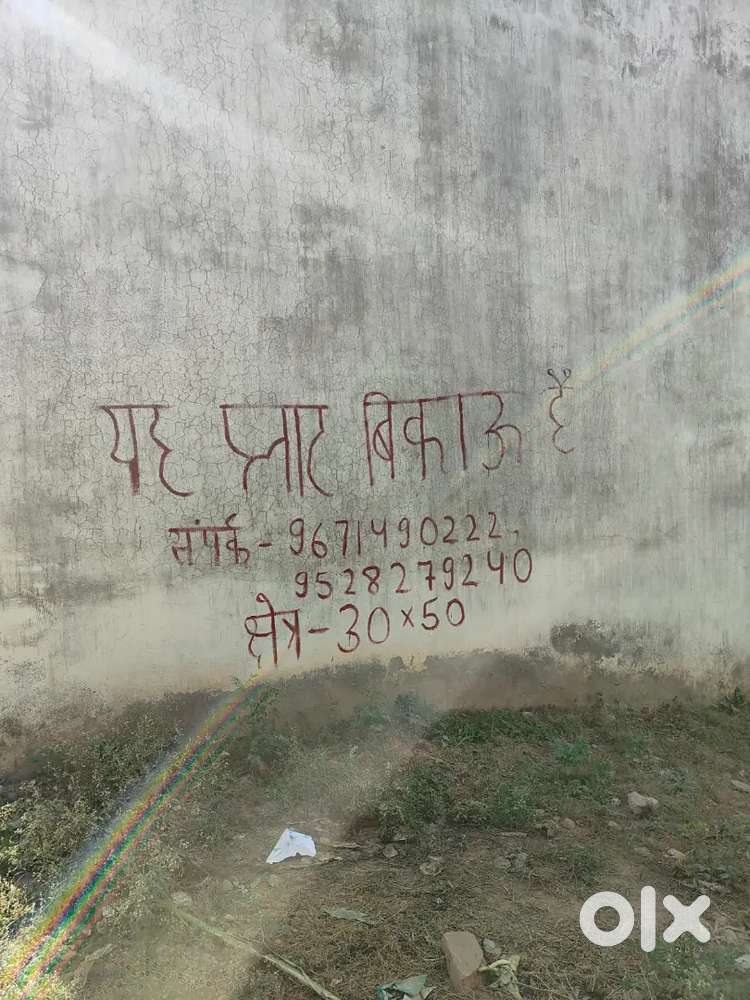 यह प्लाट बिकाऊ है
संपर्क - 9671490222,
9528279240
क्षेत्र - 30 × 50
olx